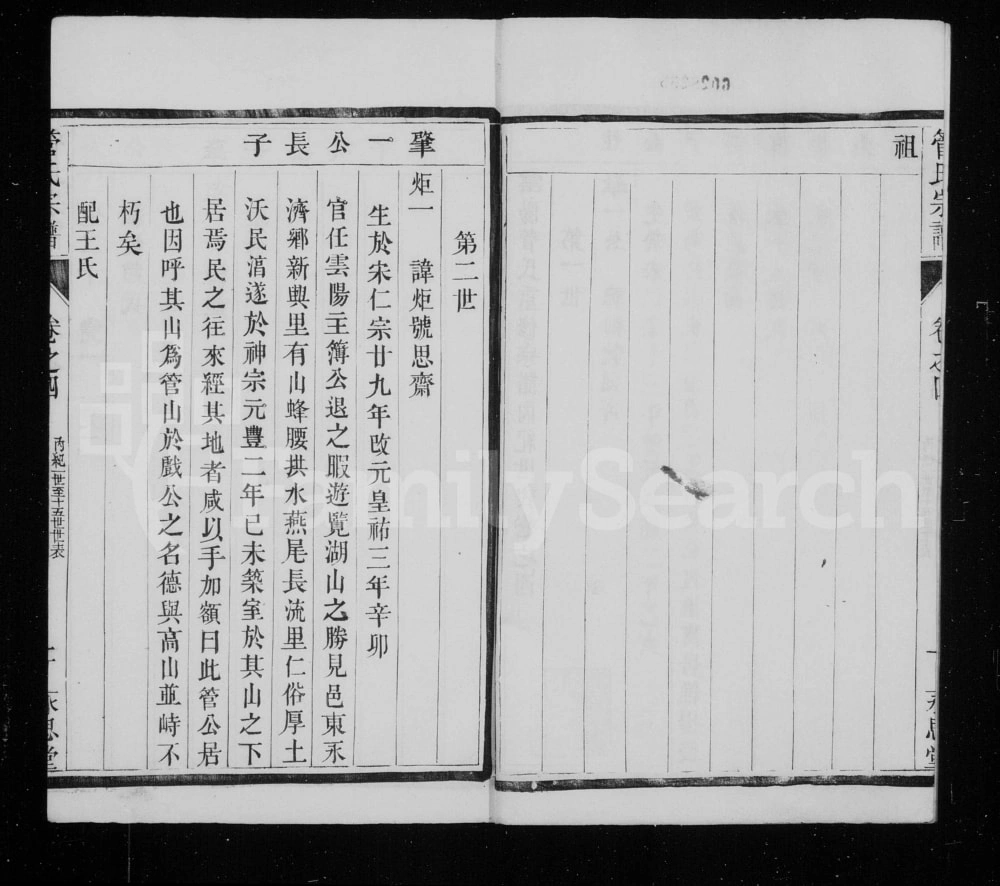 管氏宗譜
卷之四
一
永思堂
祖
肇一公長子
第二世
炬一 諱炬號思齋
生於宋仁宗廿九年改元皇祐三年辛卯
官任雲陽主簿公退之暇遊覽湖山之勝見邑東永
濟鄉新興里有山蜂腰拱水燕尾長流里仁俗厚土
沃民淳遂於神宗元豐二年己未築室於其山之下
居焉民之往來經其地者咸以手加額曰此管公居
也因呼其山爲管山於戲公之名德與高山並峙不
朽矣
配王氏
管氏宗譜
卷之四
丙紀一世至十五世世表
永思堂
FamilySearch